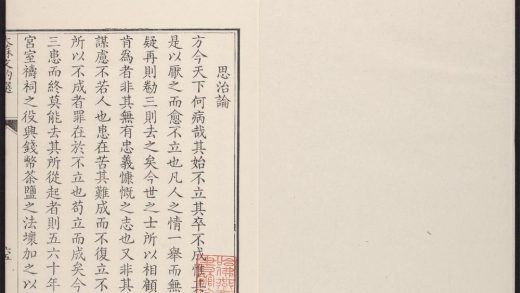 思治論
方今天下何病哉其始不立其卒不成惟其
是以厭之而愈不立也凡人之情一舉而無
疑再則勌三則去之矣今世之士所以相顧
肯為者非其無有忠義慷慨之志也又非其
謀慮不若人也患在苦其難成而不復立不
所以不成者罪在於不立也苟立而成矣今
三患而終莫能去其所從起者則五六十年
宮室禱祠之役興錢幣茶鹽之法壞加之以